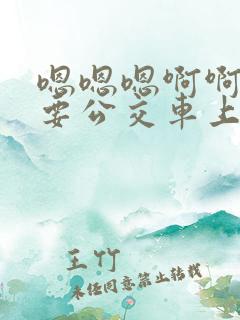 嗯嗯嗯啊啊
要公交車上
王竹
未经同意禁止转载